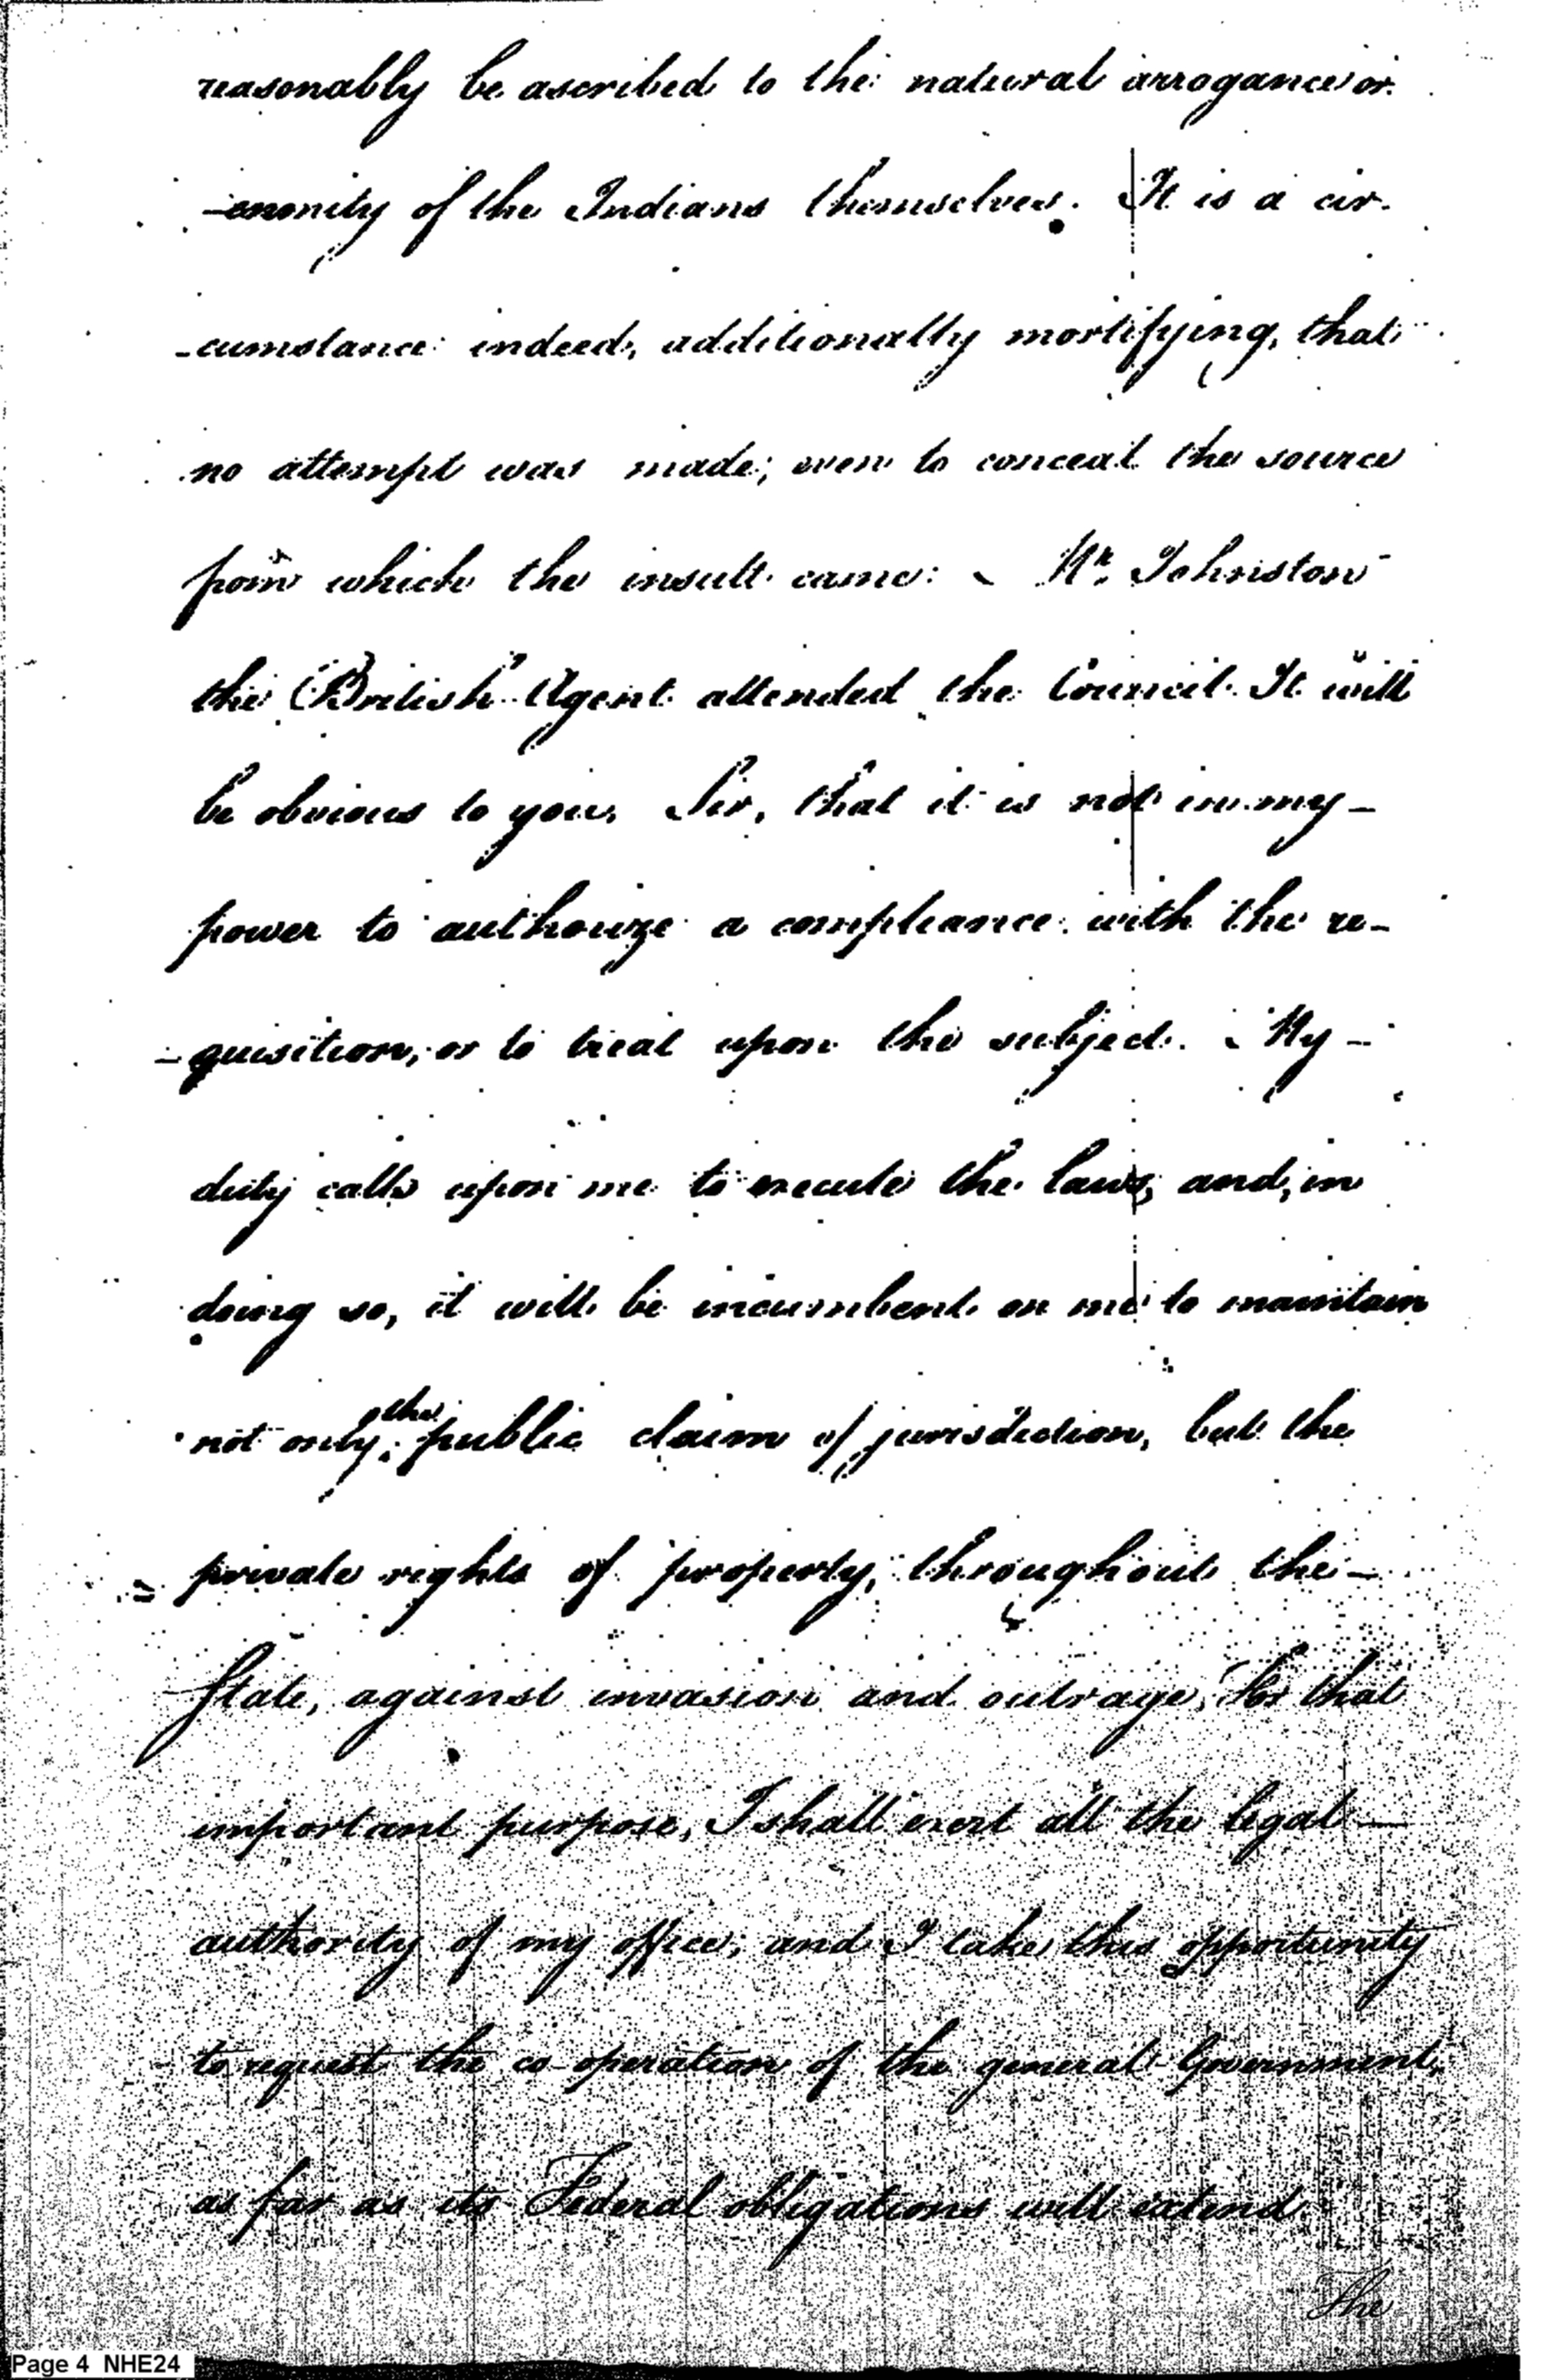 reasonably be ascribed to the natural arrogance or
-enmity of the Indians themselves. It is a cir-
-cumstance indeed, additionally mortifying, that
no attempt was made, even to conceal the source
from which the insult came: - Mr. Johnston
the British Agent attended the Council. It will
be obvious to you, Sir, that it is not in my -
power to authorize a compliance with the re-
-quisition, or to treat upon the subject. - My -
duty calls upon me to execute the laws, and, in
doing so, it will be incumbent on me to maintain
not only the public claim of jurisdiction, but the
private rights of property, throughout the -
State, against invasion and outrage. For that
important purpose, I shall exert all the legal -
authority of my office; and I take this opportunity
to request the co-operation of the general Government,
as far as its Federal obligations will extend.
The
Page 4 NHE24